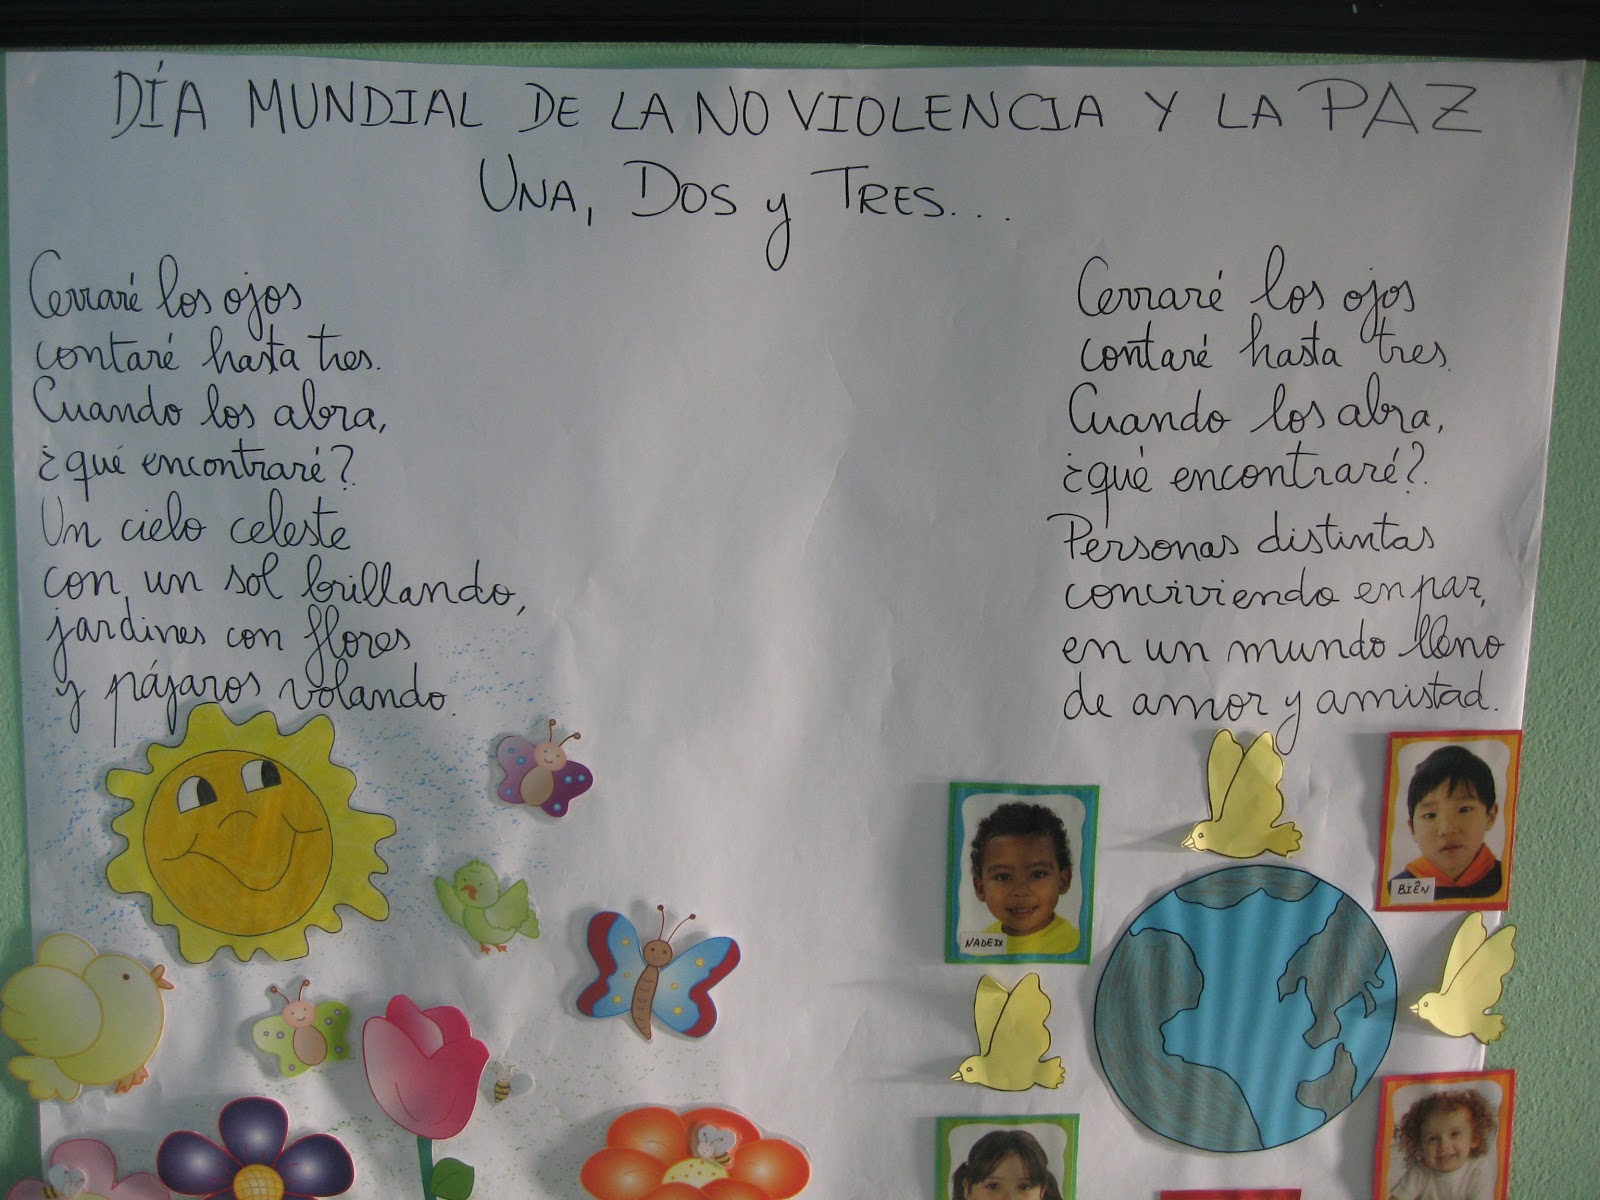 DÍA MUNDIAL DE LA NO VIOLENCIA Y LA PAZ
UNA, DOS y TRES...
Cerraré los ojos
contaré hasta tres.
Cuando los abra,
¿qué encontraré?
Un cielo celeste
con un sol brillando,
jardines con flores
y pájaros volando.
Cerraré los ojos
contaré hasta tres.
Cuando los abra,
¿qué encontraré?
Personas distintas
conviviendo en paz,
en un mundo lleno
de amor y amistad.
NADEIX
BIÊN